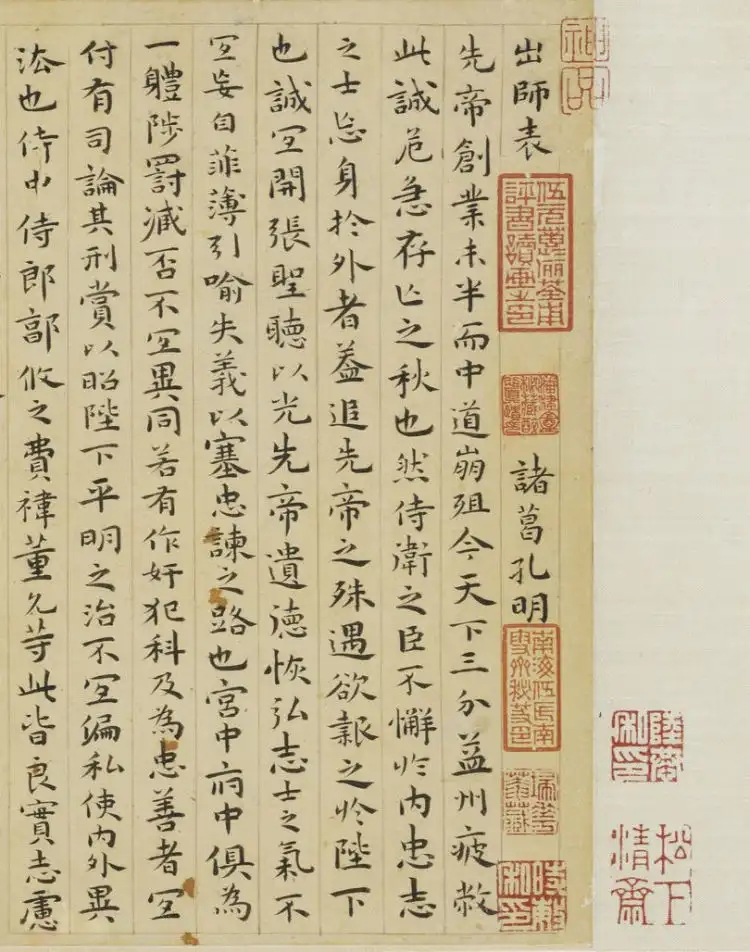 神品
出師表 諸葛孔明
先帝創業未半而中道崩殂今天下三分益州疲敝
此誠危急存亡之秋也然侍衛之臣不懈於內忠志
之士忘身於外者蓋追先帝之殊遇欲報之於陛下
也誠宜開張聖聽以光先帝遺德恢弘志士之氣不
宜妄自菲薄引喻失義以塞忠諫之路也宮中府中俱為
一體陟罰臧否不宜異同若有作奸犯科及為忠善者宜
付有司論其刑賞以昭陛下平明之治不宜偏私使內外異
法也侍中侍郎郭攸之費禕董允等此皆良實志慮
南海伍氏南雪齋秘笈印
陸恭私印
松下清齋